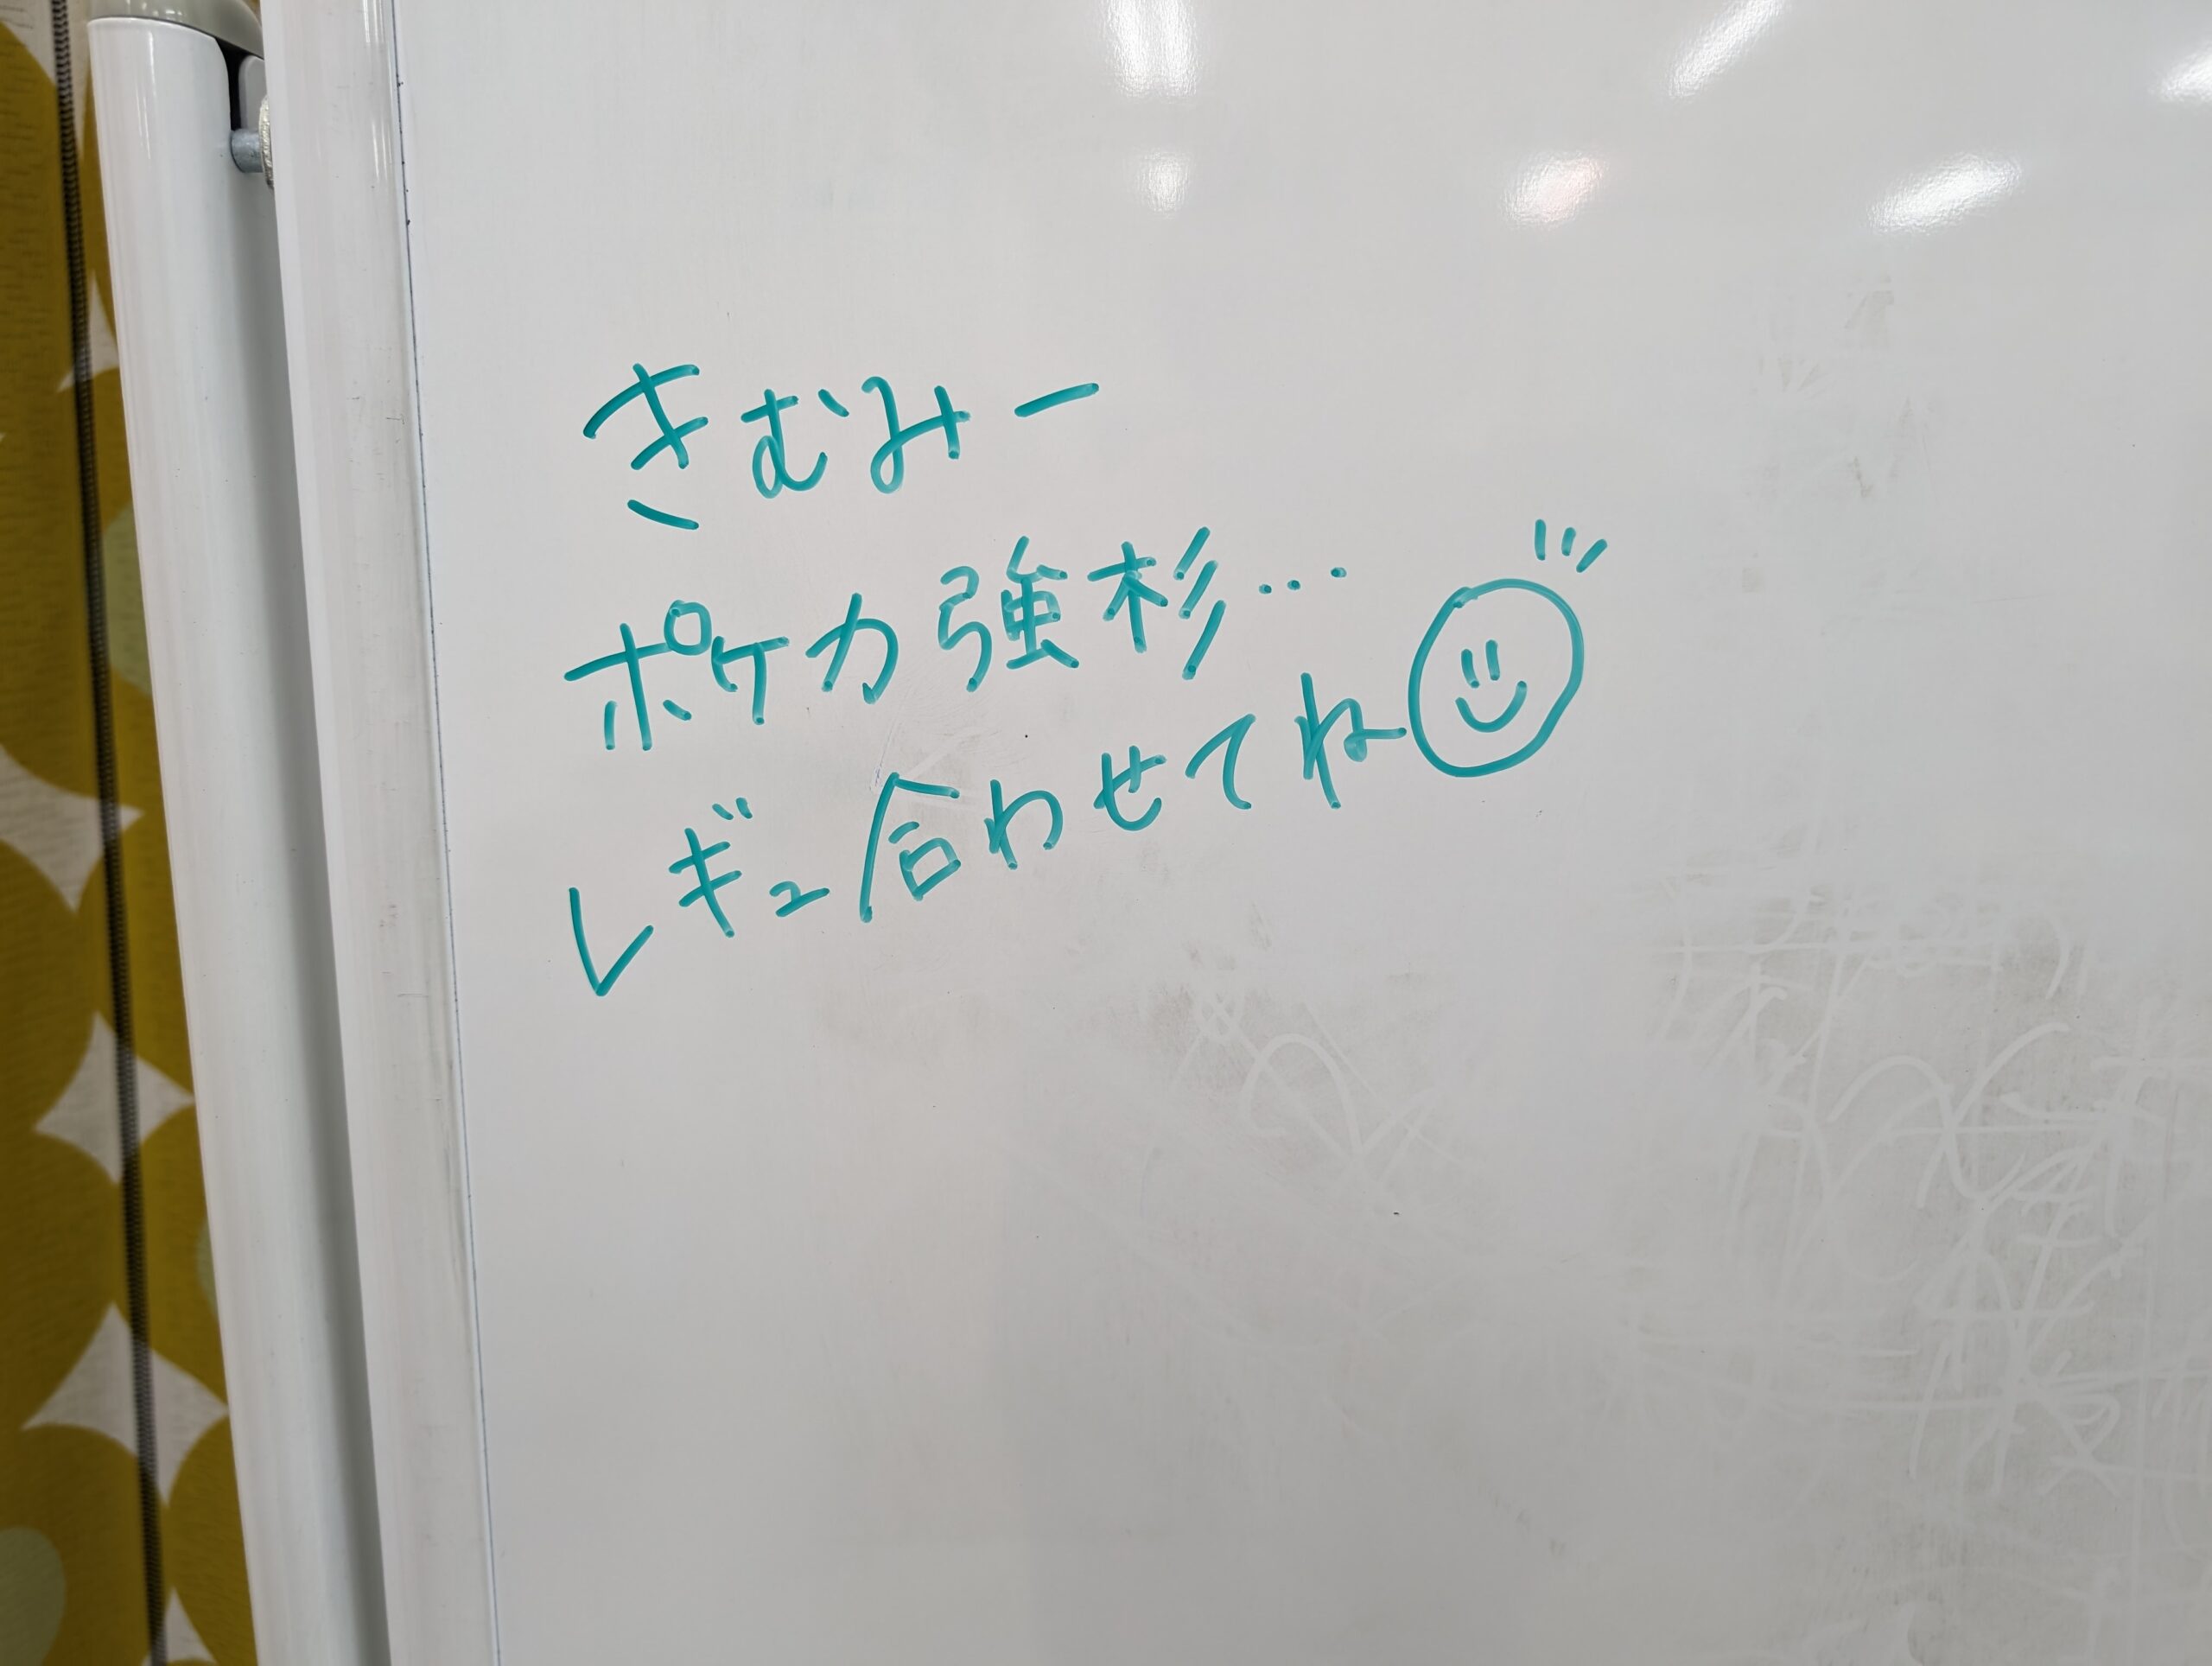 きむみー
ポケカ強杉…
レギュ合わせてね